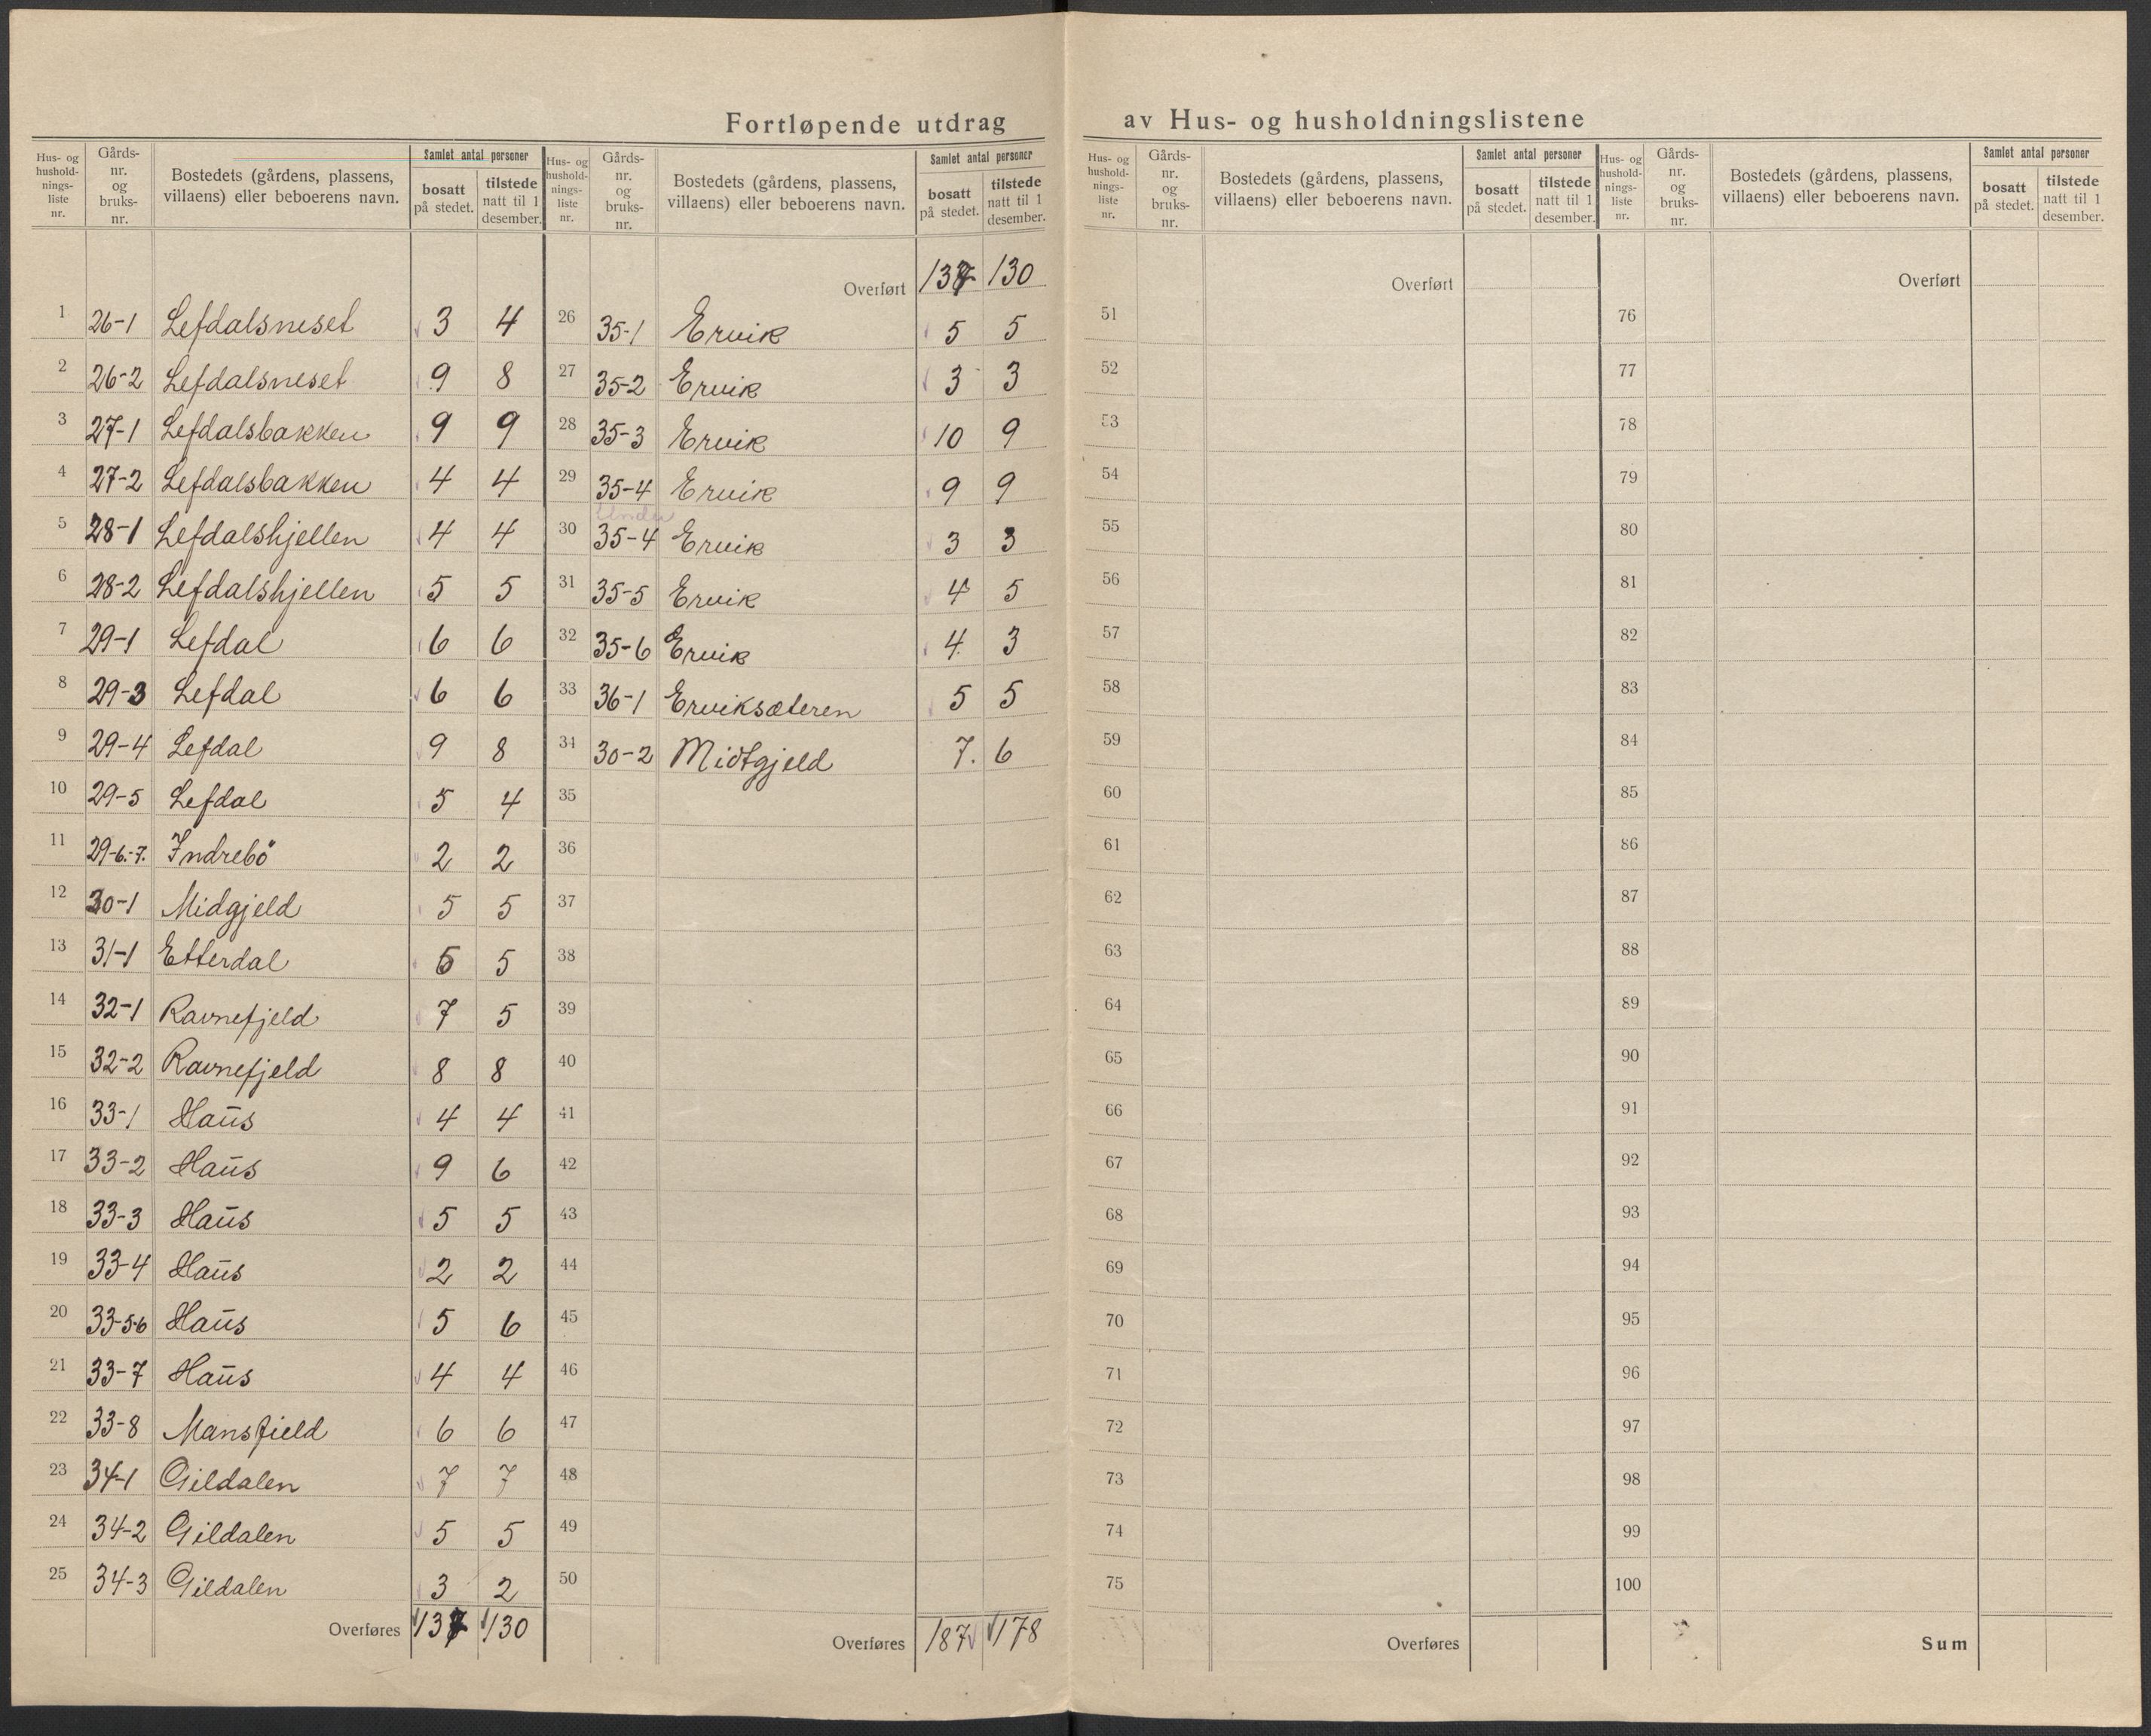 Fortløpende utdrag av Hus- og husholdningslistene
Hus- og hushold- nings- liste nr. | Gårds- nr. og bruks- nr. | Bostedets (gårdens, plassens, villaens) eller beboerens navn. | Samlet antal personer | bosatt på stedet. | tilstede natt til 1 desember.
1 26-1 Lefdalsneset 3 4
2 26-2 Lefdalsneset 9 8
3 27-1 Lefdalsbakken 9 9
4 27-2 Lefdalsbakken 4 4
5 28-1 Lefdalshjellen 4 4
6 28-2 Lefdalshjellen 5 5
7 29-1 Lefdal 6 6
8 29-3 Lefdal 6 6
9 29-4 Lefdal 9 8
10 29-5 Lefdal 5 4
11 29-6.-7. Indrebö 2 2
12 30-1 Midgjeld 5 5
13 31-1 Etterdal 5 5
14 32-1 Ravnefjeld 7 5
15 32-2 Ravnefjeld 8 8
16 33-1 Haus 4 4
17 33-2 Haus 9 6
18 33-3 Haus 5 5
19 33-4 Haus 2 2
20 33-5-6 Haus 5 6
21 33-7 Haus 4 4
22 33-8 Mansfield 6 6
23 34-1 Gildalen 7 7
24 34-2 Gildalen 5 5
25 34-3 Gildalen 3 2
Overføres 137 130
Hus- og hushold- nings- liste nr. | Gårds- nr. og bruks- nr. | Bostedets (gårdens, plassens, villaens) eller beboerens navn. | Samlet antal personer | bosatt på stedet. | tilstede natt til 1 desember.
Overført 137 130
26 35-1 Ervik 5 5
27 35-2 Ervik 3 3
28 35-3 Ervik 10 9
29 35-4 Ervik 9 9
Under
30 35-4 Ervik 3 3
31 35-5 Ervik 4 5
32 35-6 Ervik 4 3
33 36-1 Erviksæteren 5 5
34 30-2 Midtgjeld 7. 6
35
36
37
38
39
40
41
42
43
44
45
46
47
48
49
50
Overføres 187 178
Hus- og hushold- nings- liste nr. | Gårds- nr. og bruks- nr. | Bostedets (gårdens, plassens, villaens) eller beboerens navn. | Samlet antal personer | bosatt på stedet. | tilstede natt til 1 desember.
Overført
51
52
53
54
55
56
57
58
59
60
61
62
63
64
65
66
67
68
69
70
71
72
73
74
75
Overføres
Hus- og hushold- nings- liste nr. | Gårds- nr. og bruks- nr. | Bostedets (gårdens, plassens, villaens) eller beboerens navn. | Samlet antal personer | bosatt på stedet. | tilstede natt til 1 desember.
Overført
76
77
78
79
80
81
82
83
84
85
86
87
88
89
90
91
92
93
94
95
96
97
98
99
100
Sum